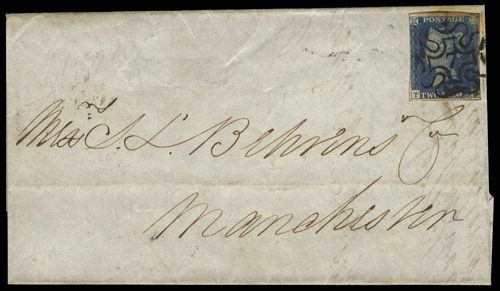 POSTAGE
T TWO
Mess.rs S. L. Behrens &
Manchester